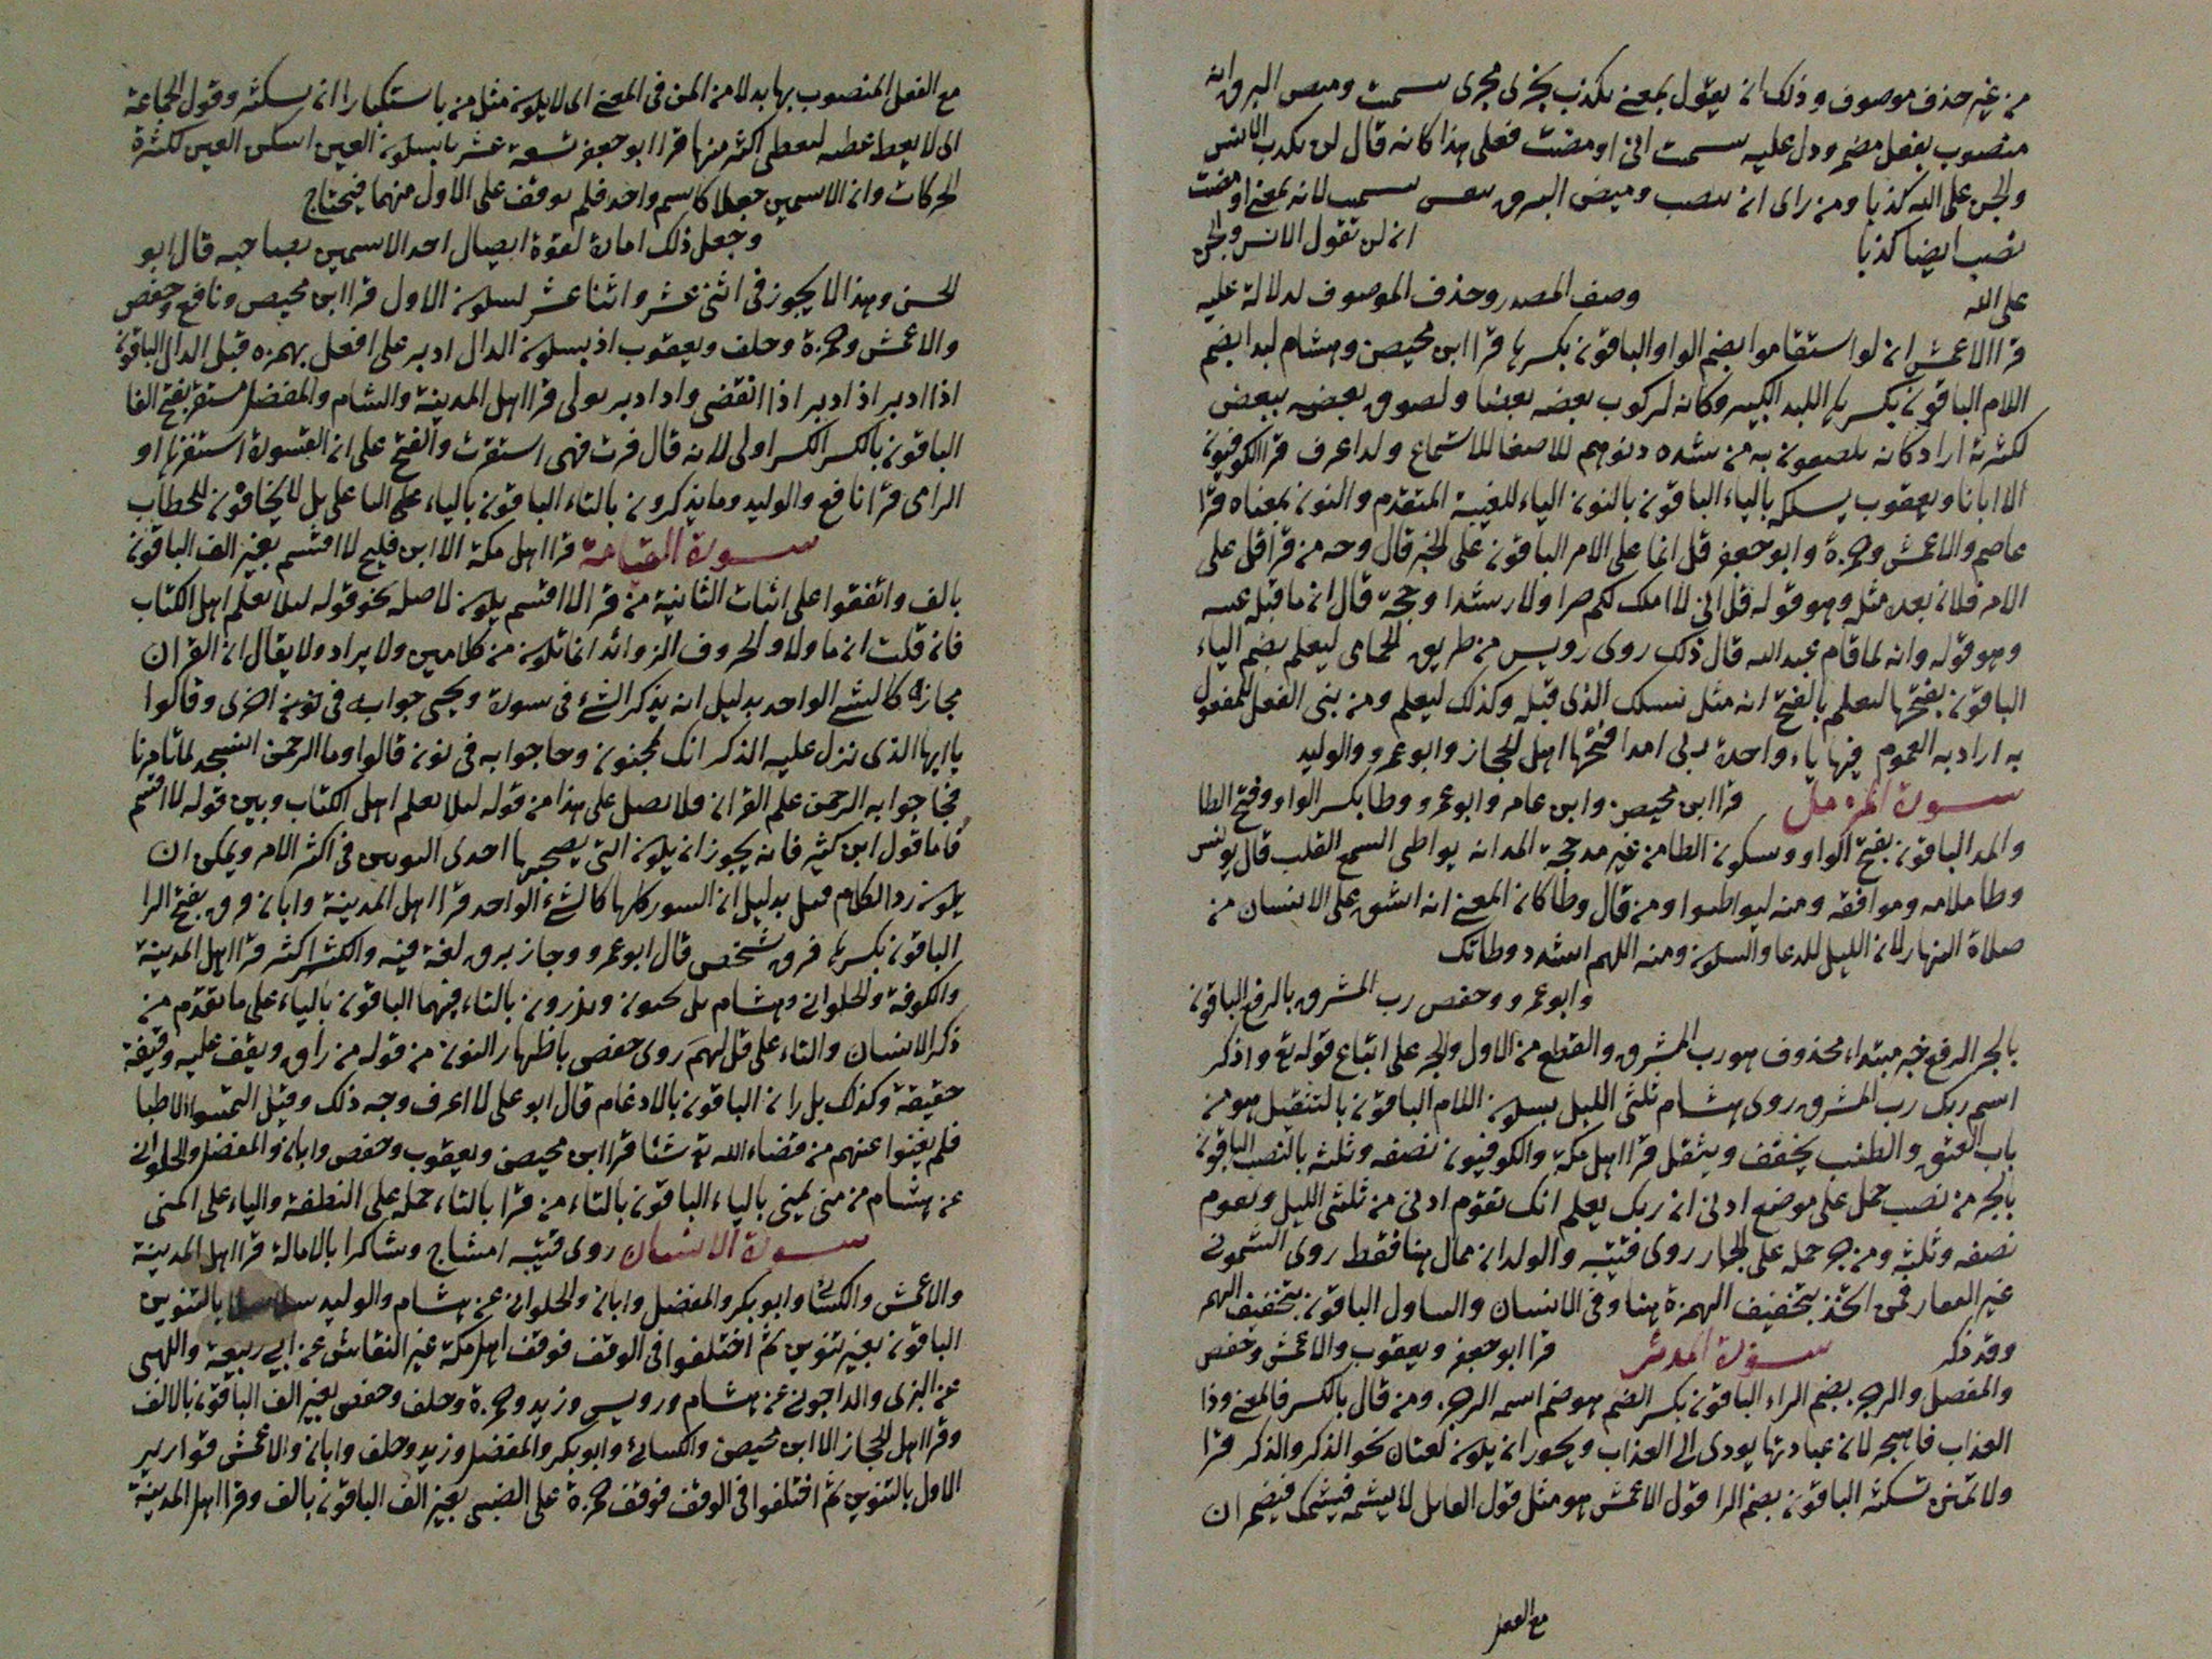 من غير حذف موصوف وذلك ان يقول بمعنى يكذب يجرى مجرى سمت وميض البرق انه
منصوب بفعل مضمر ودل عليه سمت اى اومضت فعلى هذا كانه قال لن يكذب الانس
والجن على الله كذبا ومن راى ان ينصب وميض البرق بنفس سمت لانه بمعنى اومضت
نصب ايضا كذبا ان لن تقول الانس والجن
على الله وصف المصدر وحذف الموصوف لدلالة عليه
قرا الاعمش ان لو استقاموا بضم الواو الباقون بكسرها قرا ابن محيصن وهشام لبدا بضم
اللام الباقون بكسرها اللبد الكبير وكانه لركوب بعضه بعضا ولصوق بعضه ببعض
لكثرته اراد كانه يلصقون به من شده دنوهم للاصغا للاستماع ولد اعرف قرا الكوفيون
الا ابانا ويعقوب يسلكه بالياء الباقون بالنون الياء للغيبة المتقدم والنون بمعناه قرا
عاصم والاعمش وحمزة وابو جعفر قل انما على الامر الباقون على الخبر قال وجه من قرا قل على
الامر فلان بعده مثله وهو قوله قل انى لا املك لكم ضرا ولا رشدا وحجة قال ان ما قبله غيبه
وهو قوله وانه لما قام عبد الله قال ذلك روى رويس من طريق الحمامى ليعلم بضم الياء
الباقون بفتحها ليعلم بالفتح انه مثل نسلك الذى قبله وكذلك ليعلم ومن بنى الفعل للمفعول
به اراد به العموم فيها ياء واحدة ربى امدا فتحها اهل الحجاز وابو عمرو والوليد
سورة المزمل قرا ابن محيصن وابن عامر وابو عمرو وطا بكسر الواو وفتح الطا
والمد الباقون بفتح الواو وسكون الطا من غير مد حجة المد انه يواطى السمع القلب قال يونس
وطا ملامه وموافقه ومنه ليواطوا ومن قال وطا كان المعنى انه اشق على الانسان من
صلاة النهار لان الليل للدعا والسكون ومنه اللهم اشدد وطاتك
وابو عمرو وحفص رب المشرق بالرفع الباقون
بالجر الرفع خبر مبتداء محذوف هو رب المشرق والقطع من الاول والجر على اتباع قوله تع واذكر
اسم ربك رب المشرق روى هشام ثلثى الليل بسكون اللام الباقون بالتثقيل هو من
باب العتق والطنب يخفف ويثقل قرا اهل مكة والكوفيون نصفه وثلثه بالنصب الباقون
بالجر من نصب حمل على موضع ادنى ان ربك يعلم انك تقوم ادنى من ثلثى الليل وتقوم
نصفه وثلثه ومن جر حمله على الجار روى قتيبة والولدان ممال هنا فقط روى الشمونى
غير النقار فمن اتخذ بتخفيف الهمزة هنا وفى الانسان والساول الباقون بتخفيف الهمز
وقد ذكر سورة المدثر قرا ابو جعفر ويعقوب والاعمش وحفص
والمفضل والرجز بضم الراء الباقون بكسر الضم هو صنم اسمه الرجز ومن قال بالكسر فالمعنى وذا
العذاب فاهجر لان عبادتها يودى الى العذاب ويجوز ان يكون لغتان نحو الذكر والذكر قرا
ولا تمنن تستكثر الباقون بضم الرا قول الاعمش هو مثل قول القايل لا يشتمه فيشتمك فيضمر ان
مع الفعل
مع الفعل المنصوب بها بدلا من المن فى المعنى الى لا يكون مثل من باستكبارا ان تستكثر وقول الجماعة
الى لا يعط عطيه ليعطى اكثر منها قرا ابو جعفر تسعة عشر باسكون العين اسكن العين لكثرة
الحركات وان الاسمين جعلا كاسم واحد فلم يوقف على الاول منهما فيحتاج
وجعل ذلك امارة لقوة اتصال احد الاسمين بصاحبه قال ابو
الحسن وهذا لا يجوز فى اثنى عشر واثنا عشر لسكون الاول قرا ابن محيصن ونافع وحفص
والاعمش وحمزة وخلف ويعقوب اذ بسكون الدال ادبر على افعل بهمزه قبل الدال الباقون
اذا ادبر اذ ادبر اذا انقضى واد ادبر تولى قرا اهل المدينة والشام والمفضل مستنفرة بفتح الفا
الباقون بالكسر الكسر اولى لانه قال فرت فهى استنفرت والفتح على ان القسورة استنفرها او
الرامى قرا نافع والوليد وما يذكرون بالتاء الباقون بالياء على الباء على بل لا يخافون للخطاب
سورة القيامة قرا اهل مكة الا ابن فليح لا اقسم بغير الف الباقون
بالف واتفقوا على اثبات الثانية من قرا لا اقسم يكون لا صله نحو قوله ليلا يعلم اهل الكتاب
فان قلت ان ما ولا والحروف الزوائد انما تكون من كلامين ولا يراد ولا يقال ان القران
مجازه كالشى الواحد بدليل انه يذكر الشئ فى سورة ويجى جوابه فى سورة اخرى وقالوا
يا ايها الذى نزل عليه الذكر انك لمجنون وجا جوابه فى نون قالوا وما الرحمن انسجد لما تامرنا
فجا جوابه الرحمن علم القران فلا يصل على هذا من قوله ليلا يعلم اهل الكتاب وبين قوله لا اقسم
فاما قول ابن كثير فانه يجوز ان يكون التى يصحبها احدى النونين فى اكثر الامر ويمكن ان
يكون رد الكلام قيل بدليل ان السور كلها كالشئ الواحد قرا اهل المدينة وابان برق بفتح الرا
الباقون بكسرها فرق شخص قال ابو عمرو وجاز برق لغة فيه والكسر اكثر قرا اهل المدينة
والكوفة والحلوانى وهشام بل تحبون وتذرون بالتاء فيهما الباقون بالياء على ما تقدم من
ذكر الانسان والتاء على قل لهم روى حفص باظهار النون من قوله من راق ويقف عليه وقيفة
خفيفة وكذلك بل ران الباقون بالادغام قال ابو على لا اعرف وجه ذلك وقيل التمسوا الاطبا
فلم يغنوا عنهم من قضاء الله تع شئا قرا ابن محيصن ويعقوب وحفص وابان والمفضل والحلوانى
عن هشام من منى يمنى بالياء الباقون بالتاء من قرا بالتاء حمله على النطفة والياء على المنى
سورة الانسان روى قتيبة امشاج وشاكرا بالامالة قرا اهل المدينة
والاعمش والكسائى وابو بكر والمفضل وابان والحلوانى عن هشام والوليد سلاسلا بالتنوين
الباقون بغير تنوين ثم اختلفوا فى الوقف فوقف اهل مكة غير النقاش عن ابى ربيعة واللهبى
عن البزى والداجونى عن هشام ورويس وزيد وحمزة وخلف وحفص بغير الف الباقون بالالف
وقرا اهل الحجاز الا ابن محيصن والكسائى وابو بكر والمفضل وزيد وخلف وابان والاعمش قوارير
الاول بالتنوين ثم اختلفوا فى الوقف فوقف حمزة على الضبى بغير الف الباقون بالف وقرا اهل المدينة